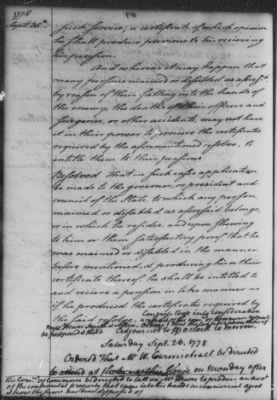 1778
Sept. 25th
such service, a certificate of which opinion
he shall produce previous to his receiving
his pension.
And whereas it may happen that
many persons maimed or disabled as aforesd
by reason of their falling into the hands of
the enemy, the deaths of their officers and
surgeons, or other accidents, may not have
it in their power to procure the certificates
required by the aforementioned resolve, to
entitle them to their pensions
Resolved That in such cases application
be made to the governor, or president and
council of the State to which any person
maimed or disabled as aforesaid belongs,
or in which he resides, and upon shewing
to him or them satisfactory proof that he
was maimed or disabled in the manner
before mentioned, & producing his or their
certificate thereof he shall be intitled to
and receive a pension in like manner as
if he produced the certificates required by
the said resolve.
Congress took into consideration
be postponed
to morrow.
Saturday Sept. 26. 1778
Ordered That Mr W. be directed
to attend at on Monday after
The Com. of Commerce be directed to call on Mr
of the continental property that